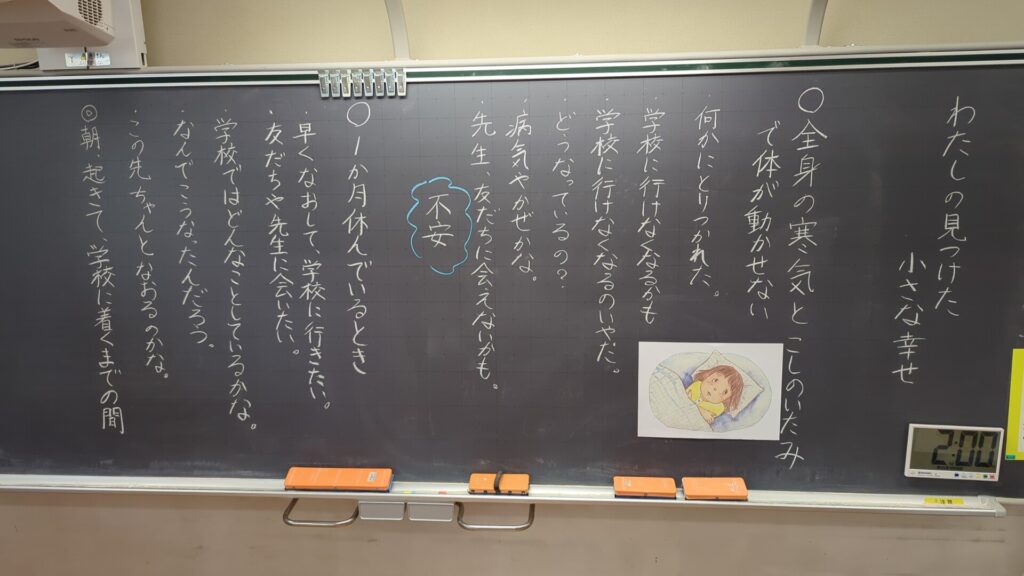 わたしの見つけた
小さな幸せ
○全身の寒気とこしのいたみ
で体が動かせない
・何かにとりつかれた。
・学校に行けなくなるかも
・学校に行けなくなるのいやだ。
・どうなっているの?
・病気やかぜかな。
・先生、友だちに会えないかも。
不安
○一か月休んでいるとき
・早くなおして、学校に行きたい。
・友だちや先生に会いたい。
・学校ではどんなことしているかな。
・なんでこうなったんだろう。
・この先ちゃんとなおるのかな。
◎朝、起きて、学校に着くまでの間
2:00